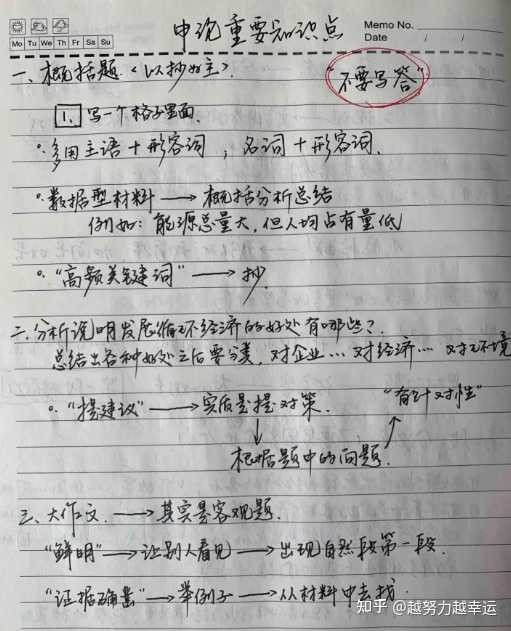 申论重要知识点
Memo No.
Mo Tu We Th Fr Sa Su
Date / /
一、概括题（以抄为主）.
"不要写答"
1. 写一个格子里面.
多用主语+形容词，名词+形容词.
数据型材料→概括分析总结
例如：能源总量大，但人均占有量低
"高频关键词"→抄.
二、分析说明发展循环经济的好处有哪些？
总结出各种好处之后要分类，对企业…对经济…对环境
"提建议"→实质是提对策.
"有针对性"
根据题中的问题.
三、大作文.→其实是客观题.
"鲜明"→让别人看见→出现自然段第一段.
"证据确凿"→举例子→从材料中去找.
知乎 @越努力越幸运